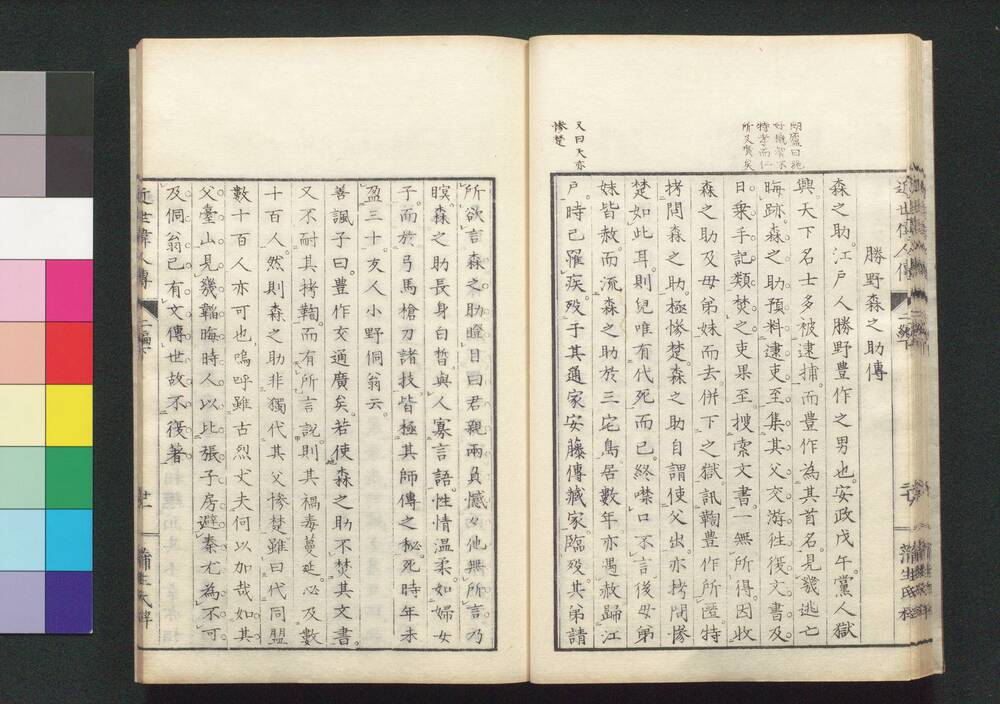 勝野森之助傳
森之助江戸人勝野豊作之男也安政戊午黨人獄
興天下名士多被逮捕而豊作為其首名見幾逃亡
晦跡森之助預料逮吏至集其父交游往復文書及
日乗手記類焚之吏果至捜索文書一無所得因收
森之助及母弟妹而去併下之獄訊鞫豊作所匿特
拷問森之助極惨楚森之助自謂使父出亦拷問惨
楚如此耳則兒唯有代死而已終噤口不言後母弟
妹皆赦而流森之助於三宅島居數年亦遇赦歸江
戸時已罹疾歿于其通家安藤傳藏家臨歿其弟請
又曰天亦
惨楚
所欲言森之助瞪目曰君親兩負憾々他無所言乃
瞑森之助長身白晳與人寡言語性情温柔如婦女
子而於弓馬槍刀諸技皆極其師傳之秘死時年未
盈三十友人小野侗翁云
善諷子曰豊作交通廣矣若使森之助不焚其文書
又不耐其拷鞫而有所言説則其禍毒蔓延必及數
十百人然則森之助非獨代其父惨楚雖曰代同盟
數十百人亦可也嗚呼雖古烈丈夫何以加哉如其
父臺山見幾韜晦時人以比張子房避秦尤為不可
及侗翁已有文傳世故不復著
近世偉人傳
二編下
廿一
蒲生氏梓